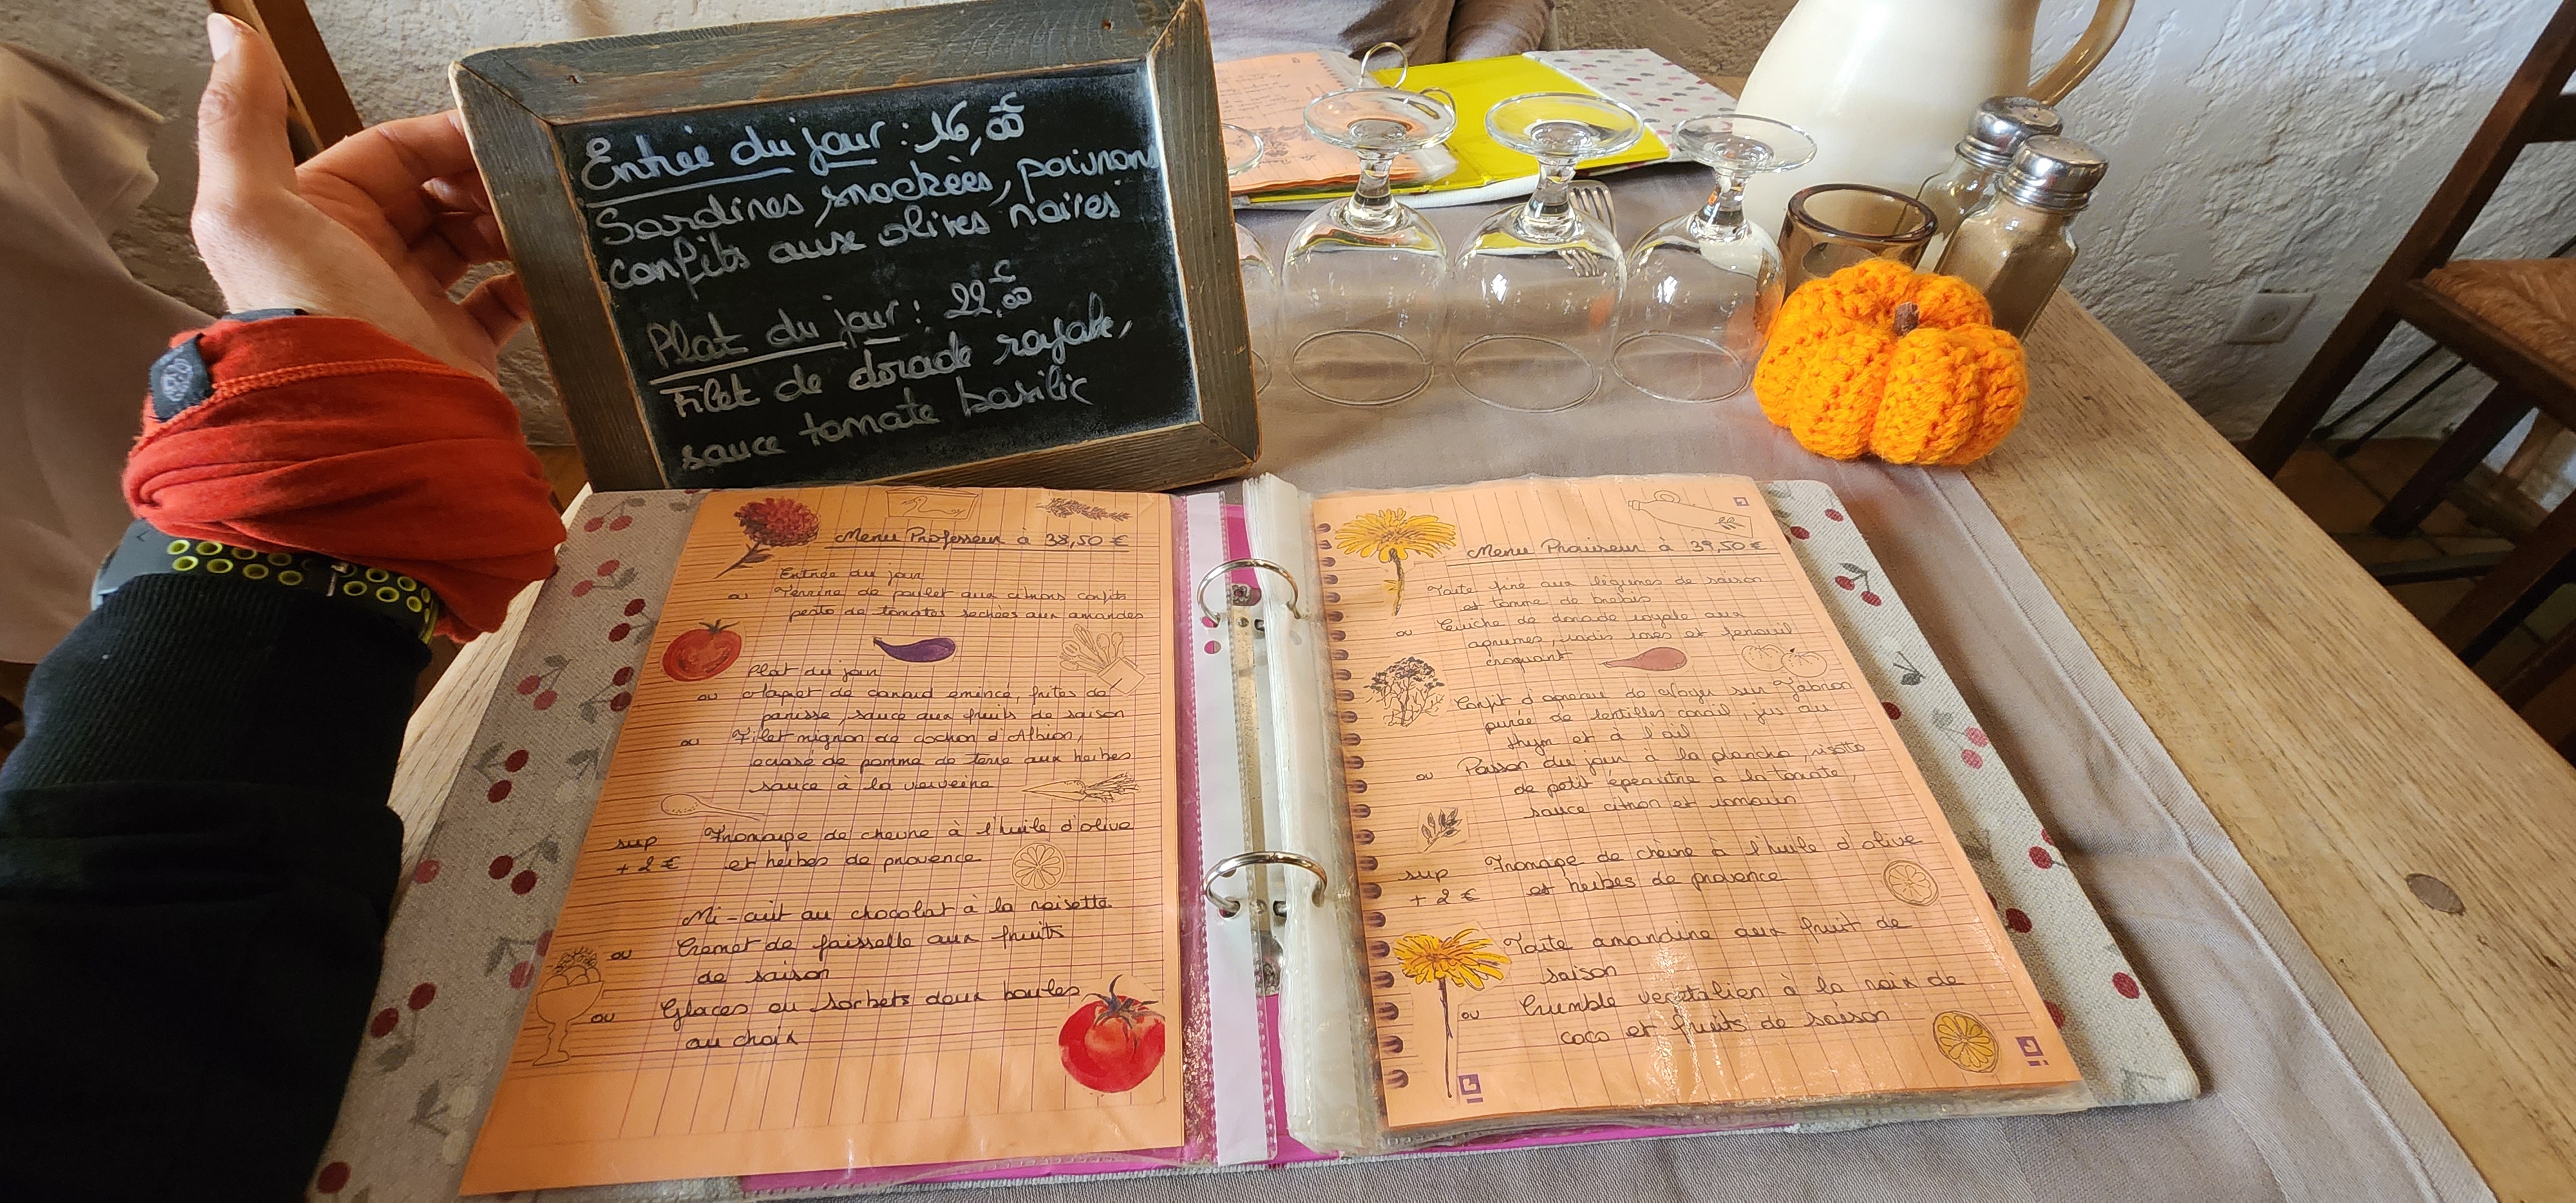 Entrée du jour : 16,00€
Sardines snockées, poivrons
confits aux olives noires
Plat du jour : 22,00€
Filet de dorade royale,
sauce tomate basilic
Menu Professeur à 38,50 €
Entrée du jour
ou Terrine de poulet aux citrons confits
pesto de tomates sechées aux amandes
Plat du jour
ou Magret de canard émincé, frites de
panisse, sauce aux fruits de saison
ou Filet mignon de cochon d'Albion,
écrasé de pomme de terre aux herbes
sauce à la verveine
sup + 2 € Fromage de chèvre à l'huile d'olive
et herbes de provence
Mi-cuit au chocolat à la noisette
ou Cremet de faisselle aux fruits
de saison
ou Glaces ou sorbets deux boules
au choix
Menu à 39,50 €
Tarte fine aux légumes de saison
et tomme de brebis
ou Ceviche de dorade royale aux
agrumes, radis roses et fenouil
croquant
Confit d'agneau de Noyer sur Jabron
purée de lentilles corail, jus au
thym et à l'ail
ou Poisson du jour à la plancha, risotto
de petit épeautre à la tomate,
sauce citron et romarin
sup + 2 € Fromage de chèvre à l'huile d'olive
et herbes de provence
Tarte amandine aux fruit de
saison
ou Crumble vegetalien à la noix de
coco et fruits de saison